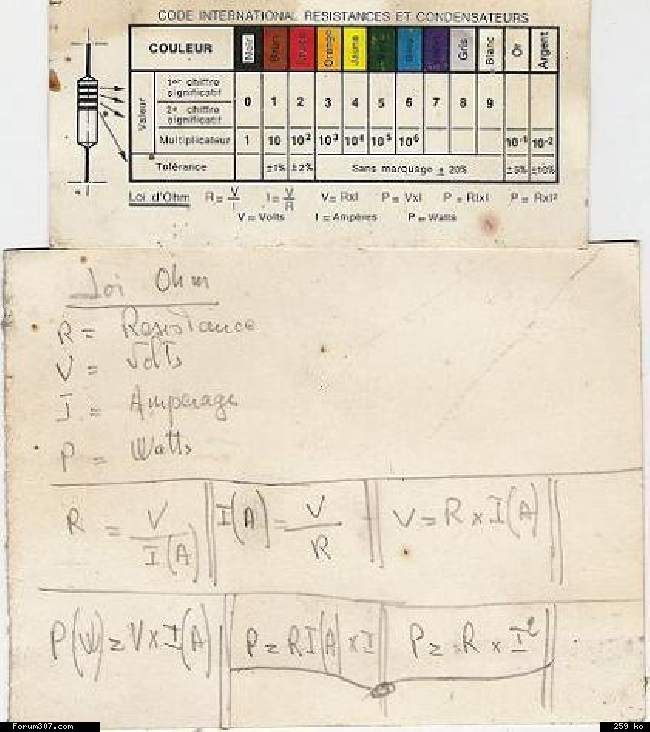 CODE INTERNATIONAL RESISTANCES ET CONDENSATEURS
COULEUR Noir Brun Rouge Orange Jaune Gris Blanc Or Argent
Valeur
1er chiffre significatif 0 1 2 3 4 5 6 7 8 9
2e chiffre significatif
Multiplicateur 1 10 10² 10³ 10⁴ 10⁵ 10⁶ 10⁻¹ 10⁻²
Tolérance ±1% ±2% Sans marquage ± 20% ±5% ±10%
Loi d'Ohm R = V/I I = V/R V = RxI P = VxI P = RIxI P = RxI²
V = Volts I = Ampères P = Watts
Loi Ohm
R = Resistance
V = Volts
I = Amperage
P = Watts
R = V/I(A) I(A) = V/R V = R x I(A)
P(W) = V x I(A) P = RI(A) x I P = R x I²
Forum307.com 259 ko